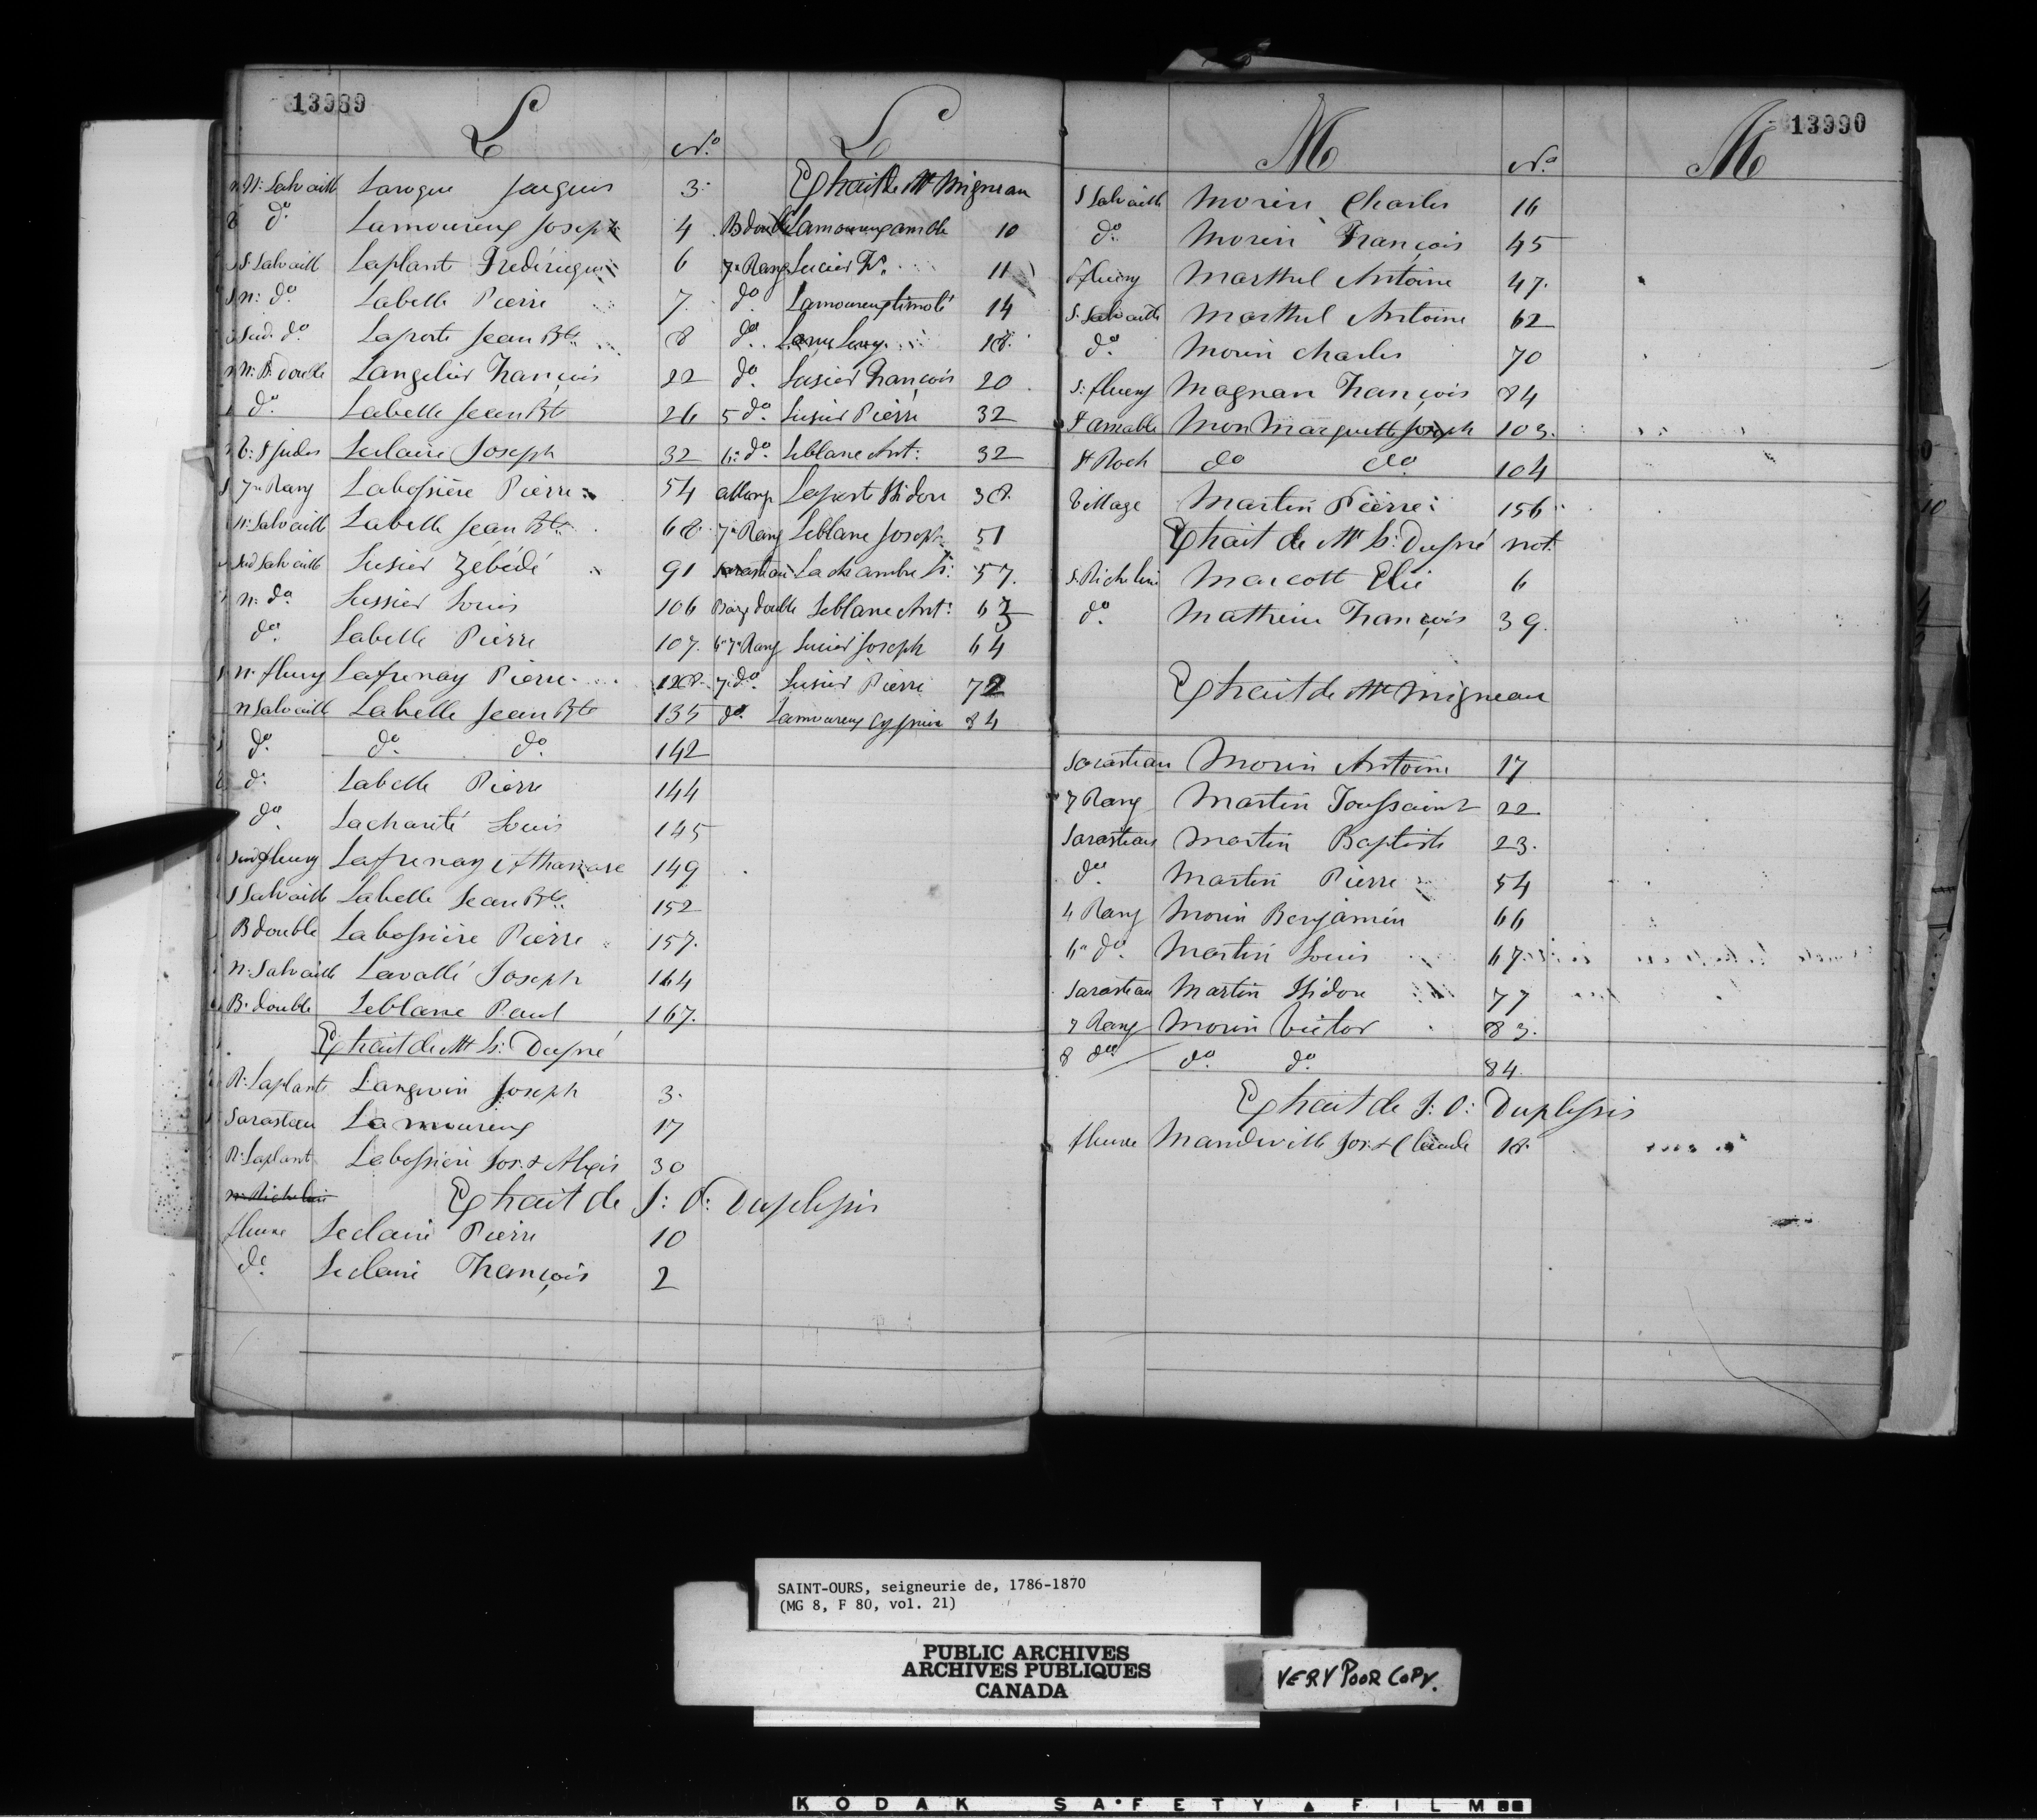 13989
L
No.
L
N: Salvaille Laroque Jacques 3
do Lamoureux Joseph 4
S: Salvaille Laplante Frédérique 6
N: do Labelle Pierre 7.
Sud. do Laporte Jean Bte 8
N: B. double Langelier François 22
do Labelle Jean Bte 26
R: St Judes Leclaire Joseph 32
7me Rang Labossière Pierre 54
N: Salvaille Labelle Jean Bte 68
Sud Salvaille Lusier Zébédé 91
N: do Lussier Louis 106
do Labelle Pierre 107.
N. fleury Lafrenay Pierre 128.
N Salvaille Labelle Jean Bte 135
do do do 142
do Labelle Pierre 144
do Lacharité Louis 145
Sud fleury Lafrenay Athanase 149
S Salvaille Labelle Jean Bte 152
B double Labossière Pierre 157.
N: Salvaille Lavallé Joseph 164
B. double Leblanc Paul 167.
Extrait de Mr L: Dupré
R: Laplante Langevin Joseph 3.
Sarasteau Lamoureux 17
R: Laplante Labossière Jos. & Alexis 30
N: Richelieu
Extrait de J: O: Duplessis
fleuve Leclaire Pierre 10
do Leclaire François 2
Extrait de Mr Migneau
B double Lamoureux amble 10
7e Rang Lucier F. 11
do Lamoureux timoté 14
do 18.
do Lusier François 20.
5 do Lusier Pierre 32
6: do Leblanc Ant: 32
Laporte Isidore 38.
7e Rang Leblanc Joseph 51
Sarasteau Lachambre 57.
Rang double Leblanc Ant: 63
6e 7e Rang Lucier Joseph 64
7. do Lusier Pierre 72
do Lamoureux Cyprien 84
13990
M
No.
M
S Salvaille Morin Charles 16
do Morin François 45
fleury Marthel Antoine 47.
S. Salvaille Marthel Antoine 62
do Morin charles 70
S: fleury Magnan François 84
St amable Mon Marquette Joseph 103.
St Roch do do 104
Village Martin Pierre 156
Extrait de Mr L: Dupré not.
S. Richelieu Marcott Elie 6
do Mathieu François 39.
Extrait de Mr Migneau
Sarasteau Morin Antoine 17
7 Rang Martin Toussaint 22
Sarasteau Martin Baptiste 23.
do Martin Pierre 54
4 Rang Morin Benjamin 66
6e do Martin Louis 67.
Sarasteau Martin Isidore 77
7 Rang Morin Victor 83.
8 do do do 84.
Extrait de J: O: Duplessis
fleuve Mandeville Jos. & Claude 18.
SAINT-OURS, seigneurie de, 1786-1870
(MG 8, F 80, vol. 21)
PUBLIC ARCHIVES
ARCHIVES PUBLIQUES
CANADA
VERY POOR COPY.
KODAK SAFETY FILM